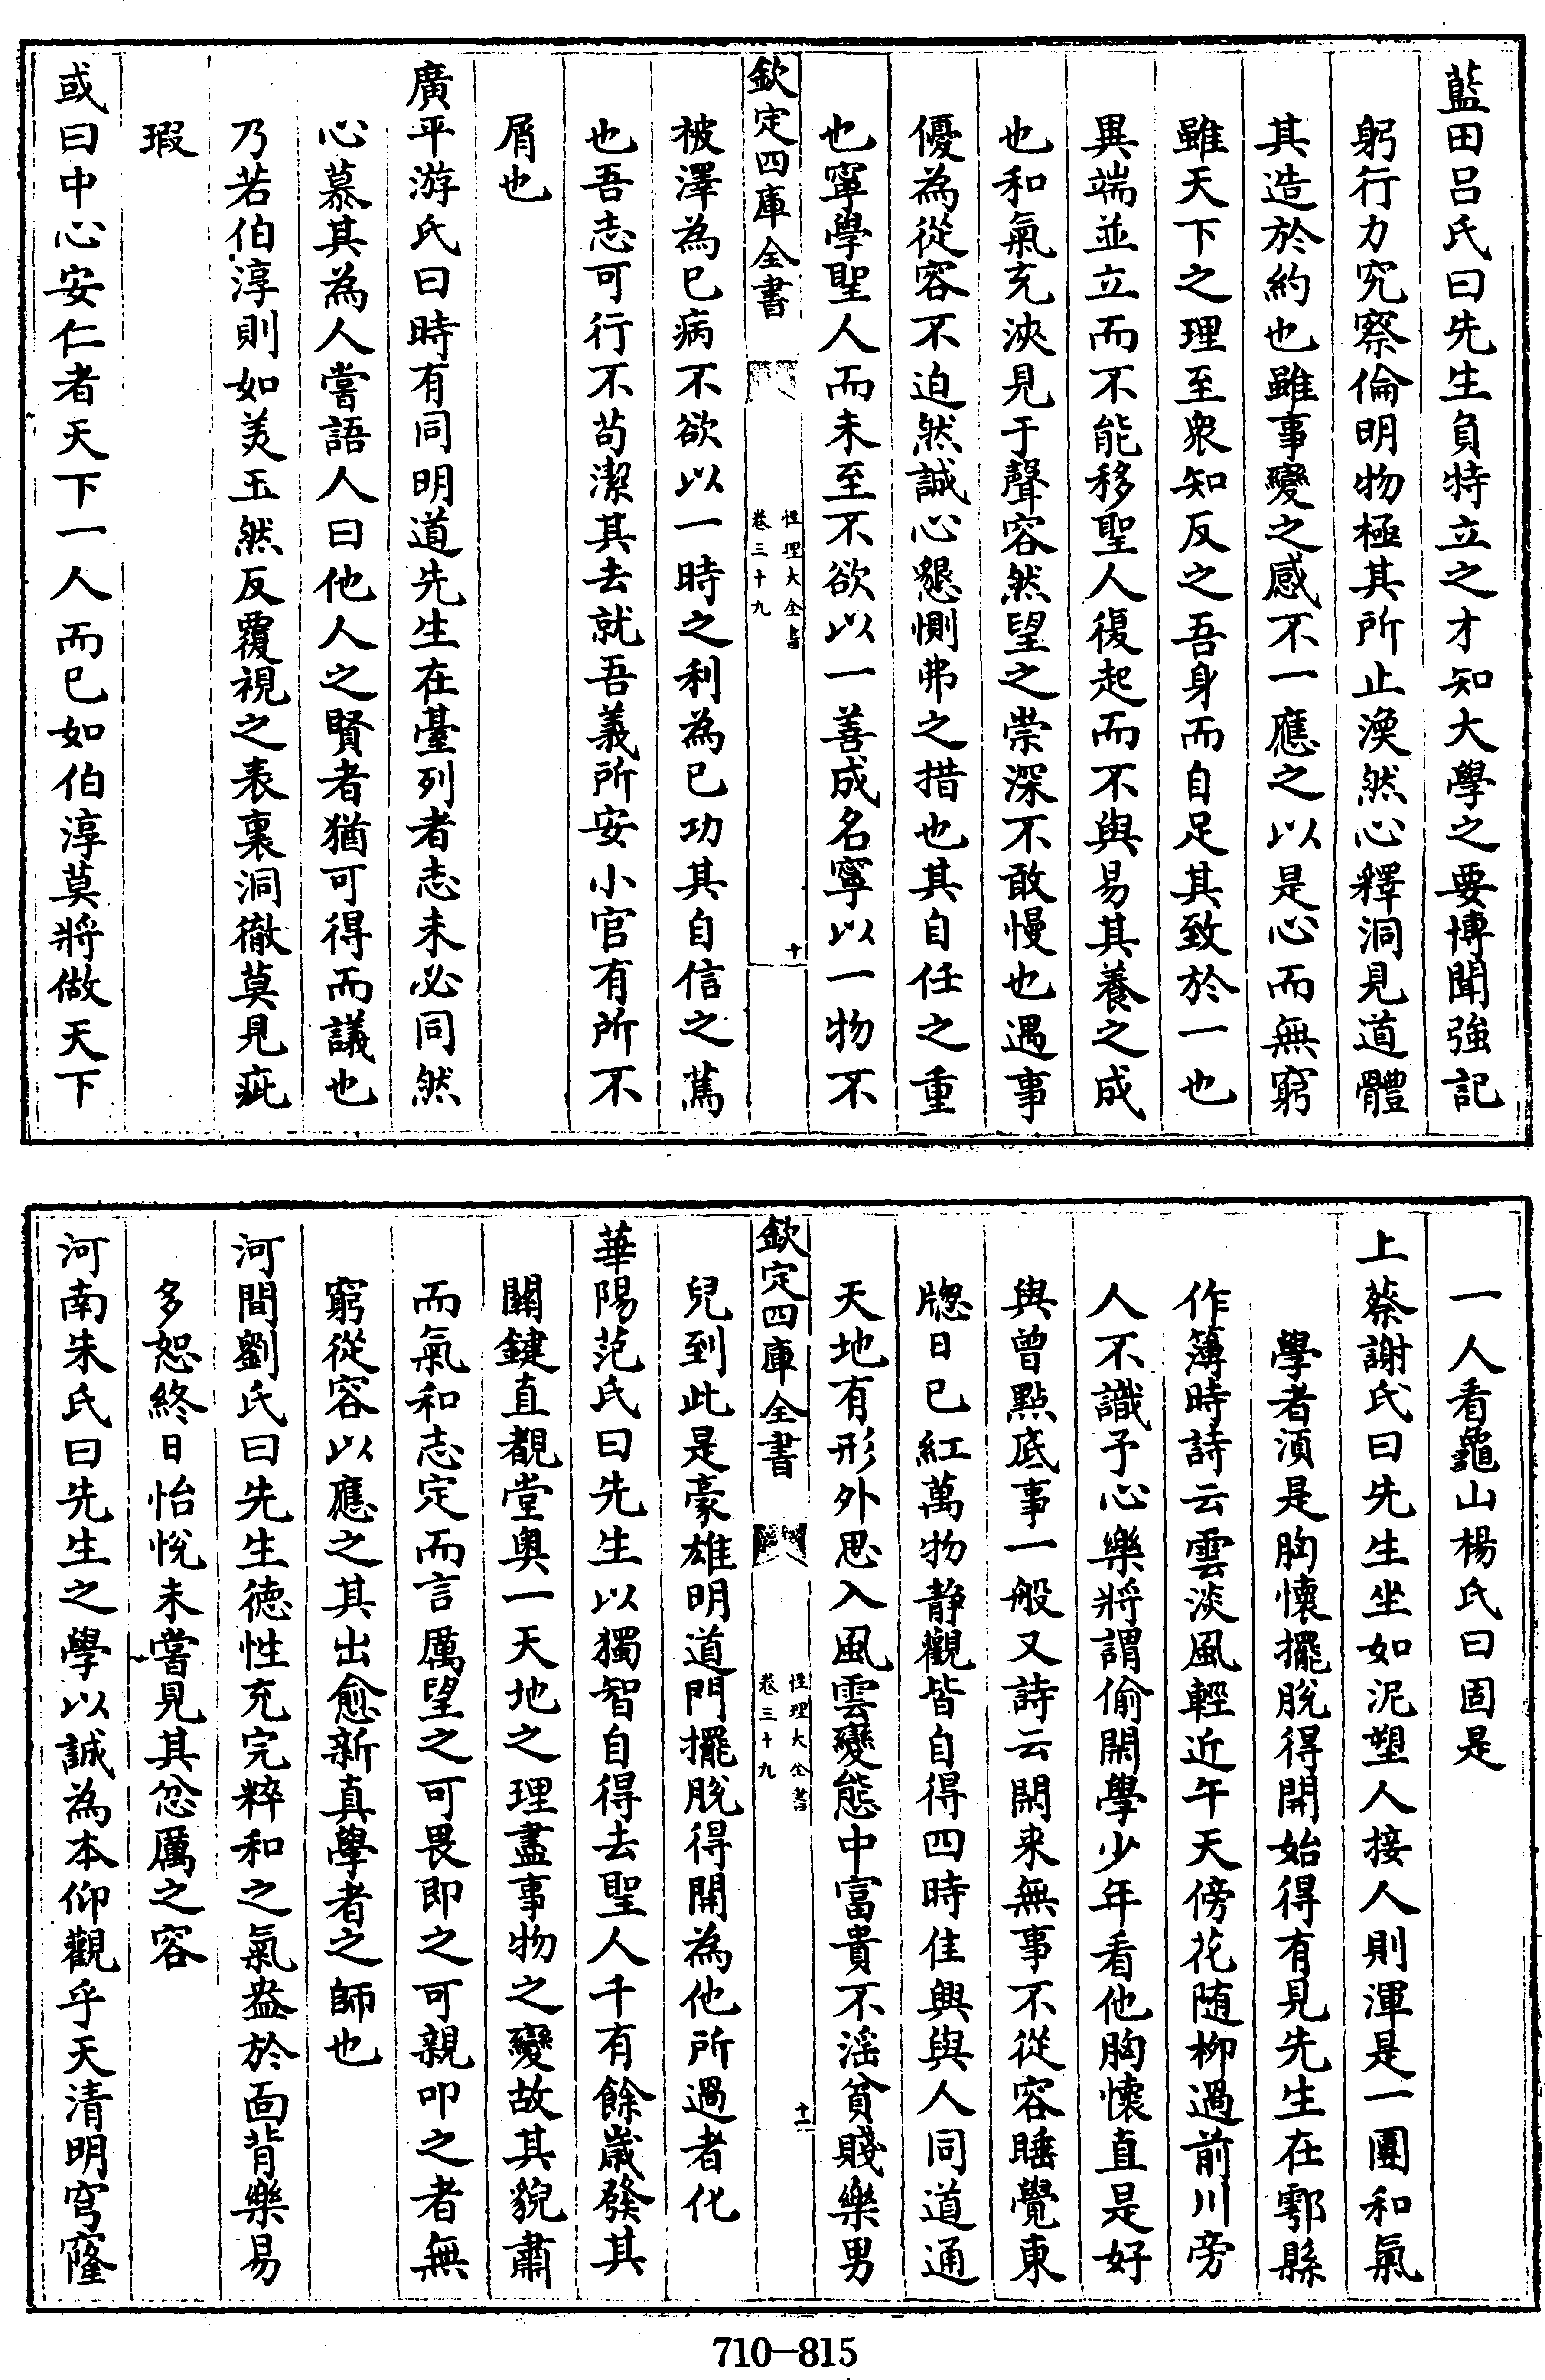 藍田呂氏曰先生負特立之才知大學之要博聞強記
躬行力究察倫明物極其所止渙然心釋洞見道體
其造於約也雖事變之感不一應之以是心而無窮
雖天下之理至衆知反之吾身而自足其致於一也
異端並立而不能移聖人復起而不與易其養之成
也和氣充浹見于聲容然望之崇深不敢慢也遇事
優為從容不迫然誠心懇惻弗之措也其自任之重
也寧學聖人而未至不欲以一善成名寧以一物不
欽定四庫全書
性理大全書
卷三十九
十
被澤為已病不欲以一時之利為已功其自信之篤
也吾志可行不苟潔其去就吾義所安小官有所不
屑也
廣平游氏曰時有同明道先生在臺列者志未必同然
心慕其為人嘗語人曰他人之賢者猶可得而議也
乃若伯淳則如美玉然反覆視之表裏洞徹莫見疵
瑕
或曰中心安仁者天下一人而已如伯淳莫將做天下
一人看龜山楊氏曰固是
上蔡謝氏曰先生坐如泥塑人接人則渾是一團和氣
學者湏是胸懷擺脫得開始得有見先生在鄠縣
作簿時詩云雲淡風輕近午天傍花随柳過前川旁
人不識予心樂將謂偷閑學少年看他胸懷直是好
與曾點底事一般又詩云閑来無事不從容睡覺東
牕日已紅萬物静觀皆自得四時佳興與人同道通
天地有形外思入風雲變態中富貴不淫貧賤樂男
欽定四庫全書
性理大全書
卷三十九
十一
兒到此是豪雄明道門擺脫得開為他所過者化
華陽范氏曰先生以獨智自得去聖人千有餘歲發其
關鍵直覩堂奥一天地之理盡事物之變故其貌肅
而氣和志定而言厲望之可畏即之可親叩之者無
窮從容以應之其出愈新真學者之師也
河間劉氏曰先生德性充完粹和之氣盎於面背樂易
多恕終日怡悦未嘗見其忿厲之容
河南朱氏曰先生之學以誠為本仰觀乎天清明穹窿
710-815